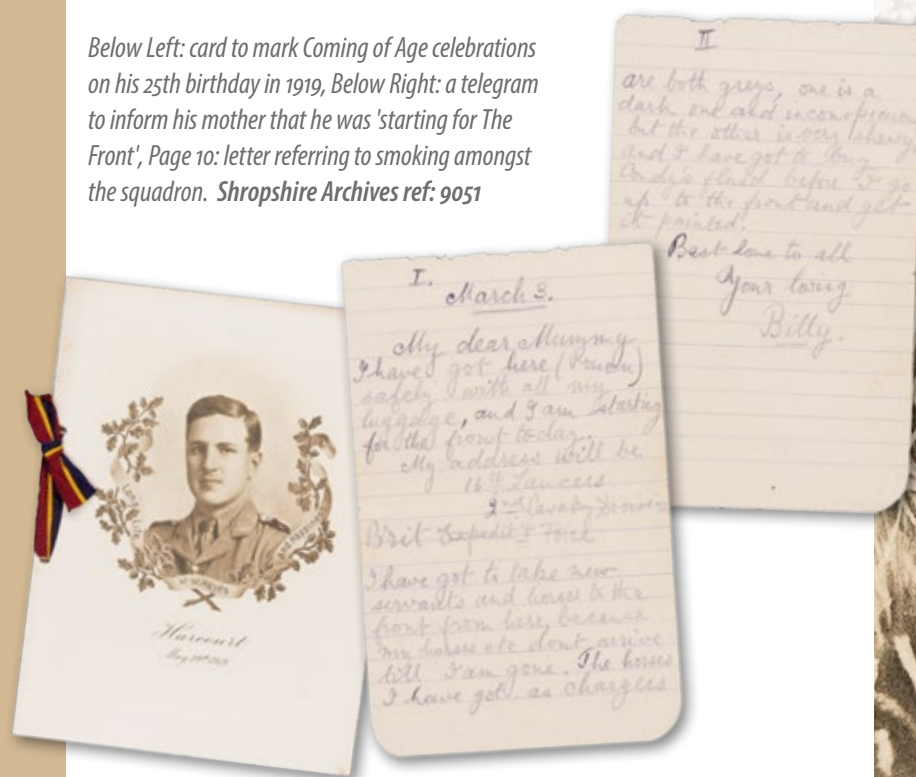 Below Left: card to mark Coming of Age celebrations
on his 25th birthday in 1919, Below Right: a telegram
to inform his mother that he was 'starting for The
Front', Page 10: letter referring to smoking amongst
the squadron. Shropshire Archives ref: 9051
I.
March 3.
My dear Mummy
I have got here (Rouen)
safely with all my
luggage, and I am starting
for the front today.
My address will be
16th Lancers
2nd Cavalry Division
Brit Expedit. Force
I have got to take new
servants and horses to the
front from here, because
my horses etc dont arrive
till I am gone. The horses
I have got as chargers
II
are both greys, one is a
dark one and inconspicuous
but the other is very showy
and I have got to buy
Condy's fluid before I go
up to the front and get
it painted.
Best love to all
Your loving
Billy.
Harcourt
May